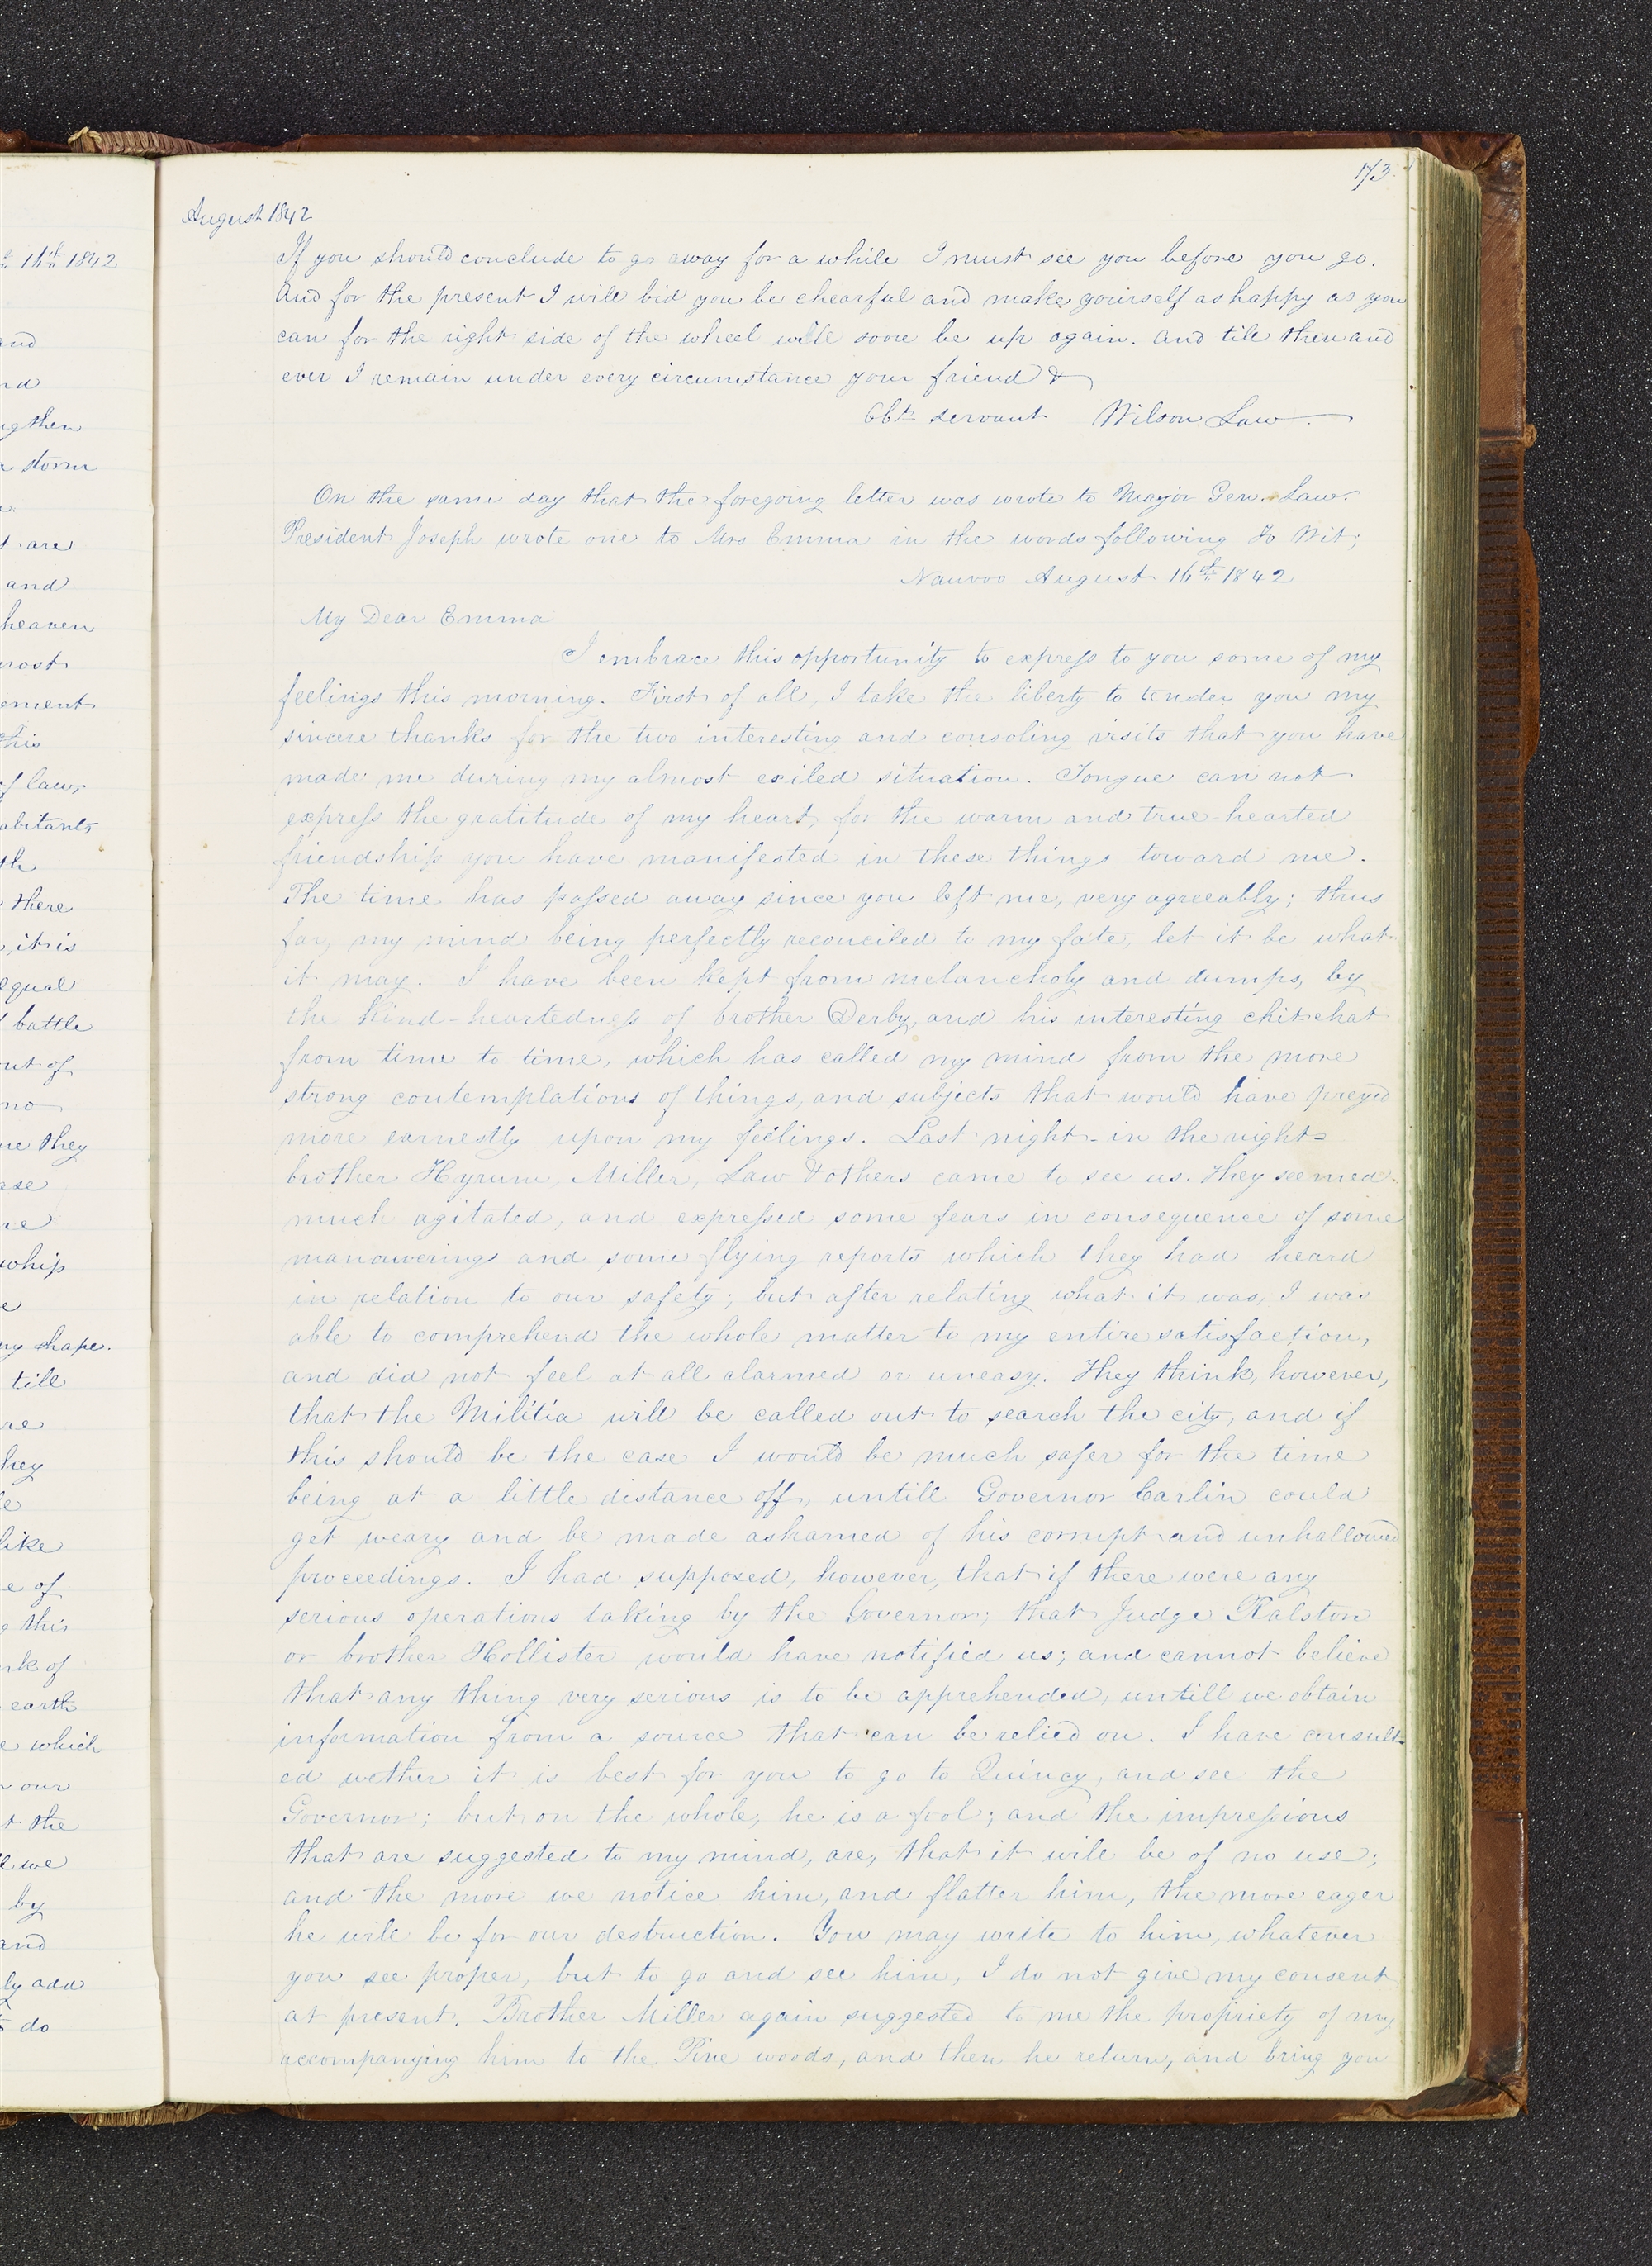 173
August 1842
If you should conclude to go away for a while I must see you before you go.
And for the present I will bid you be chearful and make yourself as happy as you
can for the right side of the wheel will soon be up again. And till then and
ever I remain under every circumstance your friend &
Obt. servant Wilson Law
On the same day that the foregoing letter was wrote to Major Gen. Law.
President Joseph wrote one to Mrs Emma in the words following To Wit;
Nauvoo August 16th 1842
My Dear Emma
I embrace this opportunity to express to you some of my
feelings this morning. First of all, I take the liberty to tender you my
sincere thanks for the two interesting and consoling visits that you have
made me during my almost exiled situation. Tongue can not
express the gratitude of my heart, for the warm and true-hearted
friendship you have manifested in these things toward me.
The time has passed away since you left me, very agreeably; thus
far, my mind being perfectly reconciled to my fate, let it be what
it may. I have been kept from melancholy and dumps, by
the kind-heartedness of brother Derby, and his interesting chit-chat
from time to time, which has called my mind from the more
strong contemplations of things, and subjects that would have preyed
more earnestly upon my feelings. Last night- in the night-
brother Hyrum, Miller, Law & others came to see us. They seemed
much agitated, and expressed some fears in consequence of some
manouverings and some flying reports which they had heard
in relation to our safety; but after relating what it was, I was
able to comprehend the whole matter to my entire satisfaction,
and did not feel at all alarmed or uneasy. They think, however,
that the Militia will be called out to search the city, and if
this should be the case I would be much safer for the time
being at a little distance off, untill Governor Carlin could
get weary and be made ashamed of his corrupt and unhallowed
proceedings. I had supposed, however, that if there were any
serious operations taking by the Governor; that Judge Ralston
or brother Hollister would have notified us; and cannot believe
that any thing very serious is to be apprehended, untill we obtain
information from a source that can be relied on. I have consult-
ed wether it is best for you to go to Quincy, and see the
Governor; but on the whole, he is a fool; and the impressions
that are suggested to my mind, are, that it will be of no use;
and the more we notice him, and flatter him, the more eager
he will be for our destruction. You may write to him, whatever
you see proper, but to go and see him, I do not give my consent
at present. Brother Miller again suggested to me the propriety of my
accompanying him to the Pine woods, and then he return, and bring you